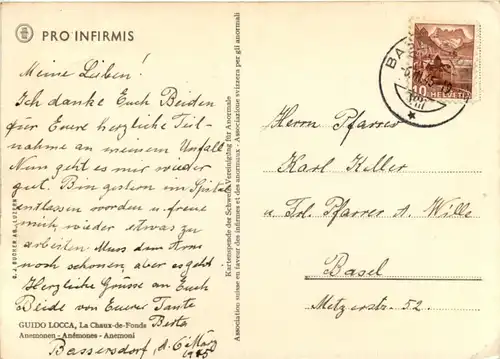 PRO INFIRMIS
Meine Lieben!
Ich danke Euch Beiden
für Eure herzliche Teil-
nahme an meinem Unfall
Nun geht es mir wieder
gut. Bin gestern im Spital
entlassen worden u freue
mich, wieder etwas zu
arbeiten. Muss dem Arme
noch schonen, aber es geht.
Herzliche Grüsse an Euch
Beide von Eurer Tante
Berta
GUIDO LOCCA, La Chaux-de-Fonds
Anemonen - Anémones - Anemoni
Bassersdorf, d. 6 März
1945
Kartenspende der Schweiz. Vereinigung für Anormale
Association suisse en faveur des infirmes et des anormaux - Associazione svizzera per gli anormali
10
HELVETIA
Herrn Pfarrer
Karl Keller
u Frl. Pfarrer d. Wille
Basel
Metzerstr. 52.